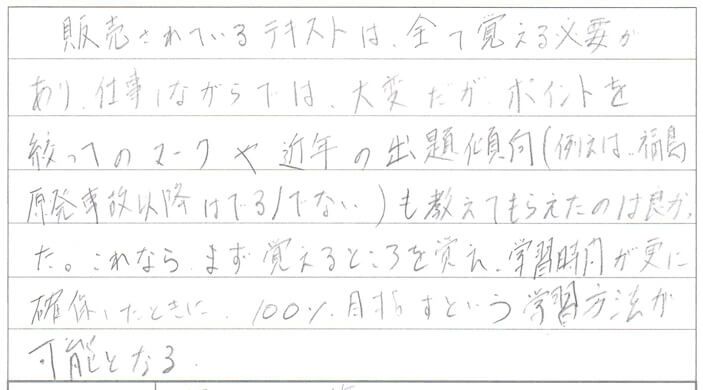 販売されているテキストは、全て覚える必要が
あり、仕事しながらでは、大変だが、ポイントを
絞ってのマークや近年の出題傾向(例えば、福島
原発事故以降はでる/でない)も教えてもらえたのは良かっ
た。これなら、まず覚えるところを覚え、学習時間が更に
確保したときに、100%目指すという学習方法が
可能となる。